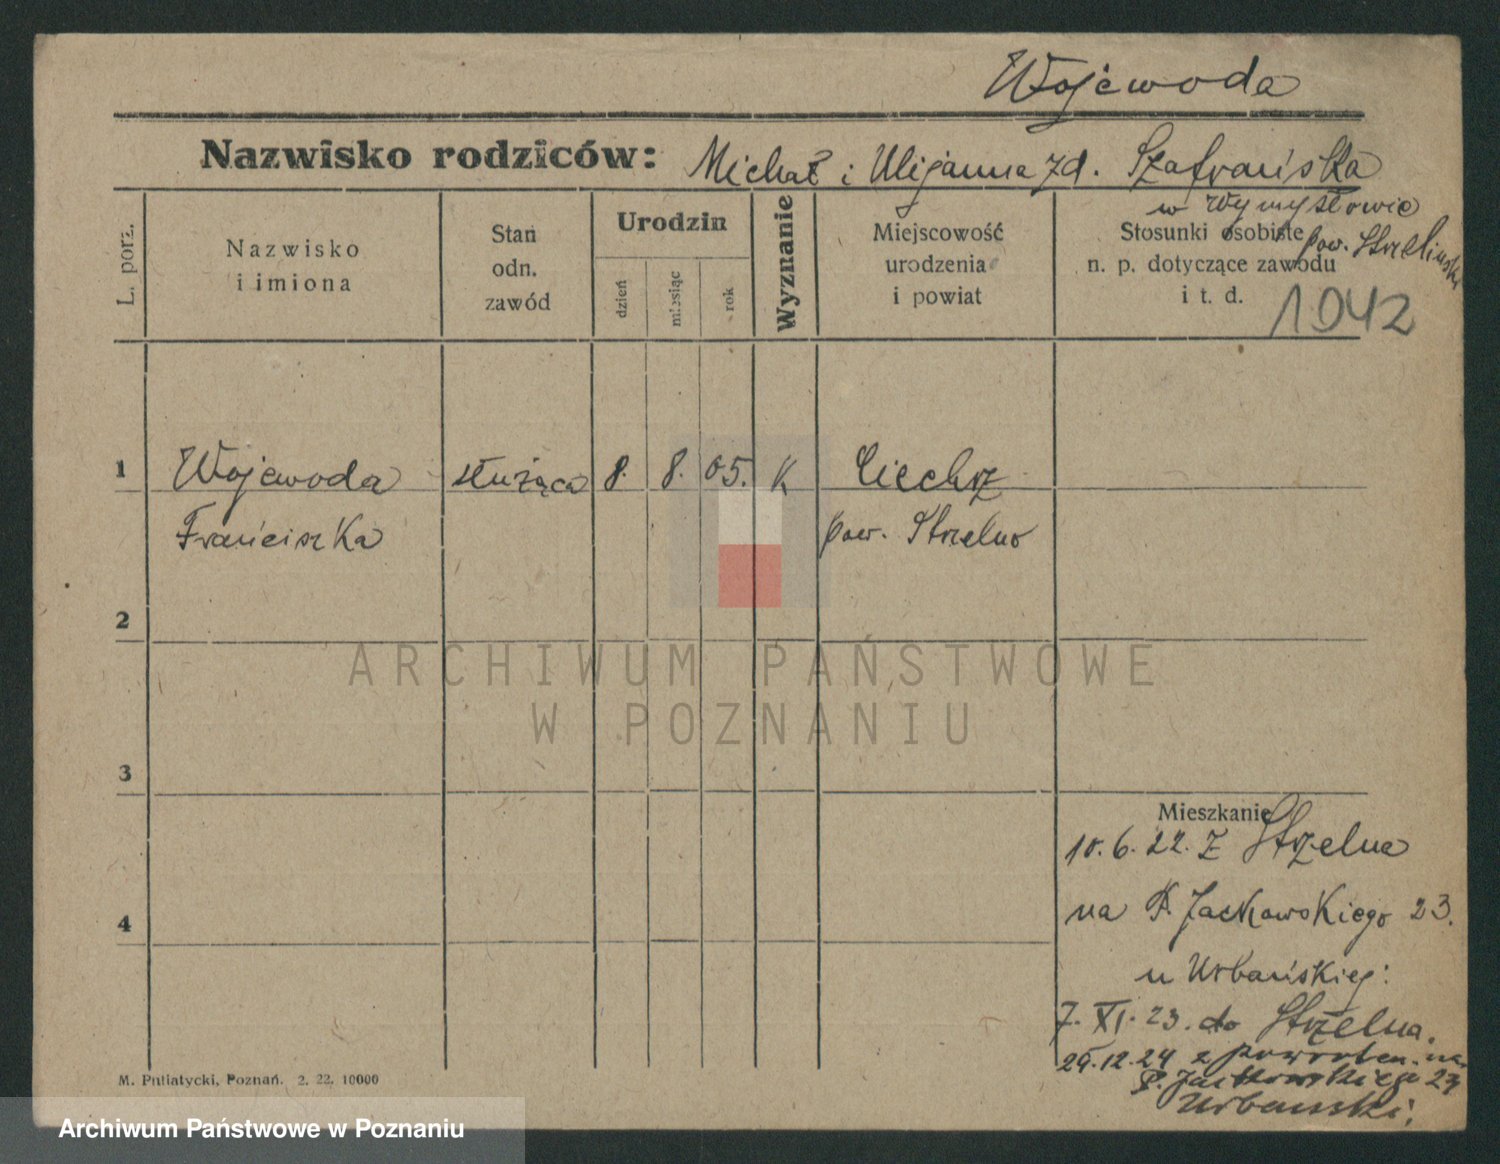 Wojewoda
Nazwisko rodziców: Michał i Ulijanna zd. Szafrańska
w Wymysłowie
pow. Strzeliński
L. porz.
Nazwisko
i imiona
Stan
odn.
zawód
Urodzin
dzień
miesiąc
rok
Wyznanie
Miejscowość
urodzenia
i powiat
Stosunki osobiste
n. p. dotyczące zawodu
i t. d.
1942
1 Wojewoda służąca 8. 8. 05. K Ciechrz
Franciszka pow. Strzelno
2
3
4
Mieszkanie
10. 6. 22. z Strzelna
na P. Jackowskiego 23.
u Urbańskiej:
7. XI. 23. do Strzelna.
29.12.24 z powrotem na
P. Jackowskiego 23
Urbanski,
M. Putiatycki, Poznań. 2. 22. 10000
ARCHIWUM PAŃSTWOWE
W POZNANIU
Archiwum Państwowe w Poznaniu